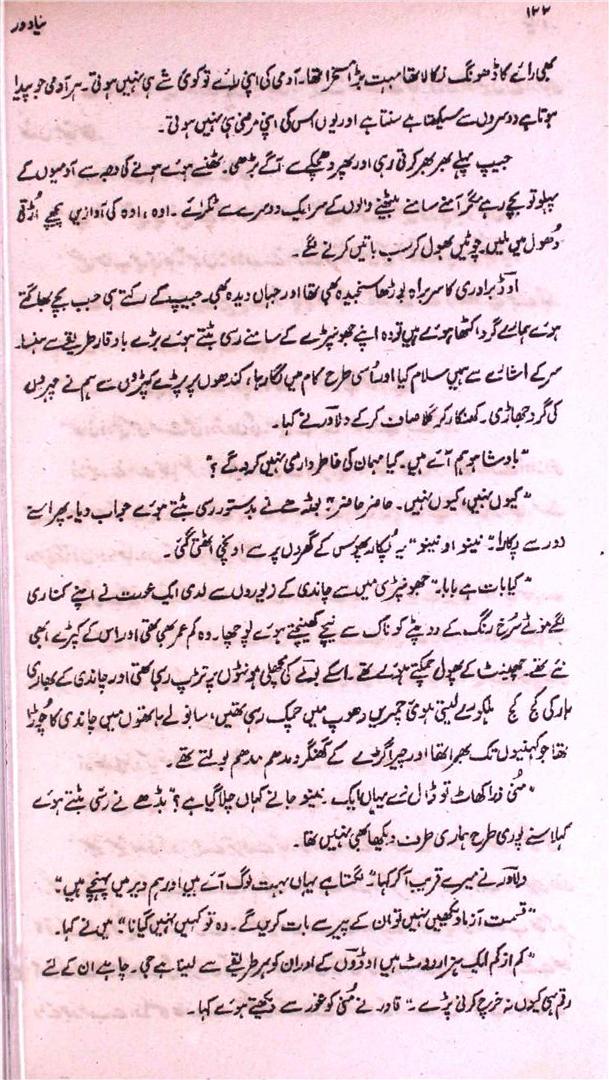 ۱۲۲
نیا دور
بھی رائے کا ڈھونگ نکالا تھا بہت بڑا مسخرا تھا۔ آدمی کی اپنی رائے تو کوئی شے ہی نہیں ہوتی۔ ہر آدمی جو پیدا
ہوتا ہے دوسروں سے سیکھتا ہے سنتا ہے اور یوں اس کی اپنی مرضی ہی نہیں ہوتی۔
جیپ پہلے بھر بھر کرتی رہی اور پھر دھچکے سے آگے بڑھی۔ ٹھنسے ہوئے ہونے کی وجہ سے آدمیوں کے
پہلو تو بچے رہے مگر آمنے سامنے بیٹھنے والوں کے سر ایک دوسرے سے ٹکرائے۔ اوہ، اوہ کی آوازیں پیچھے اُڑتی
دھول میں ملیں۔ چوٹیں بھول کر سب باتیں کرنے لگے۔
اوڈ برادری کا سربراہ بوڑھا سنجیدہ بھی تھا اور جہاں دیدہ بھی۔ جیپ کے رکتے ہی جب بچے بھاگتے
ہوئے ہمارے گرد اکٹھا ہوئے ہیں تو وہ اپنے جھونپڑے کے سامنے رسی بٹتے ہوئے بڑے باوقار طریقے سے ہنسا۔
سر کے اشارے سے ہمیں سلام کیا اور اسی طرح کام میں لگا رہا، کندھوں پر پڑے کپڑوں سے ہم نے چہروں
کی گرد جھاڑی۔ کھنکار کر گلا صاف کر کے دلاور نے کہا۔
"بادشاہو ہم آئے ہیں۔ کیا مہمان کی خاطر داری نہیں کرو گے؟"
"کیوں نہیں، کیوں نہیں۔ حاضر حاضر" بڈھے نے بدستور رسی بٹتے ہوئے جواب دیا۔ پھر اسنے
زور سے پکارا" نینو او نینو" یہ پکار پھونس کے گھروں پر سے اونچی اٹھتی گئی۔
"کیا بات ہے بابا۔" جھونپڑی میں سے چاندی کے زیوروں سے لدی ایک عورت نے اپنے کناری
لگے ہوئے سرخ رنگ کے دوپٹے کو ناک سے نیچے کھینچتے ہوئے پوچھا۔ وہ کم عمر بھی تھی اور اس کے کپڑے ابھی
نئے تھے۔ چھینٹ کے پھول چمکتے ہوئے تھے۔ اسکے بُلے کی مچھلی ہونٹوں پر تڑپ رہی تھی اور چاندی کے بھاری
ہار کی گج گج ہلکورے لیتی ہوئی جھمریں دھوپ میں چمک رہی تھیں، سانولے ہاتھوں میں چاندی کا چوڑا
تھا جو کہنیوں تک بھرا تھا اور جھیرا کڑے کے گھنگرو مدھم مدھم بولتے تھے۔
"مُنی ذرا کھاٹ تو ڈال دے یہاں ایک۔ نینو جانے کہاں چلا گیا ہے؟" بڈھے نے رسی بٹتے ہوئے
کہا اسنے پوری طرح ہماری طرف دیکھا بھی نہیں تھا۔
دلاور نے میرے قریب آ کر کہا" لگتا ہے یہاں بہت لوگ آئے ہیں اور ہم دیر میں پہنچے ہیں"
"قسمت آزما دیکھیں نہیں تو ان کے پیر سے بات کریں گے۔ وہ تو کہیں نہیں گیا نا۔" میں نے کہا۔
"کم از کم ایک ہزار ووٹ ہیں اوڈوں کے اور ان کو ہر طریقے سے لینا ہے جی۔ چاہے ان کے لئے
رقم ہی کیوں نہ خرچ کرنی پڑے۔" قادر نے مُنی کو غور سے دیکھتے ہوئے کہا۔